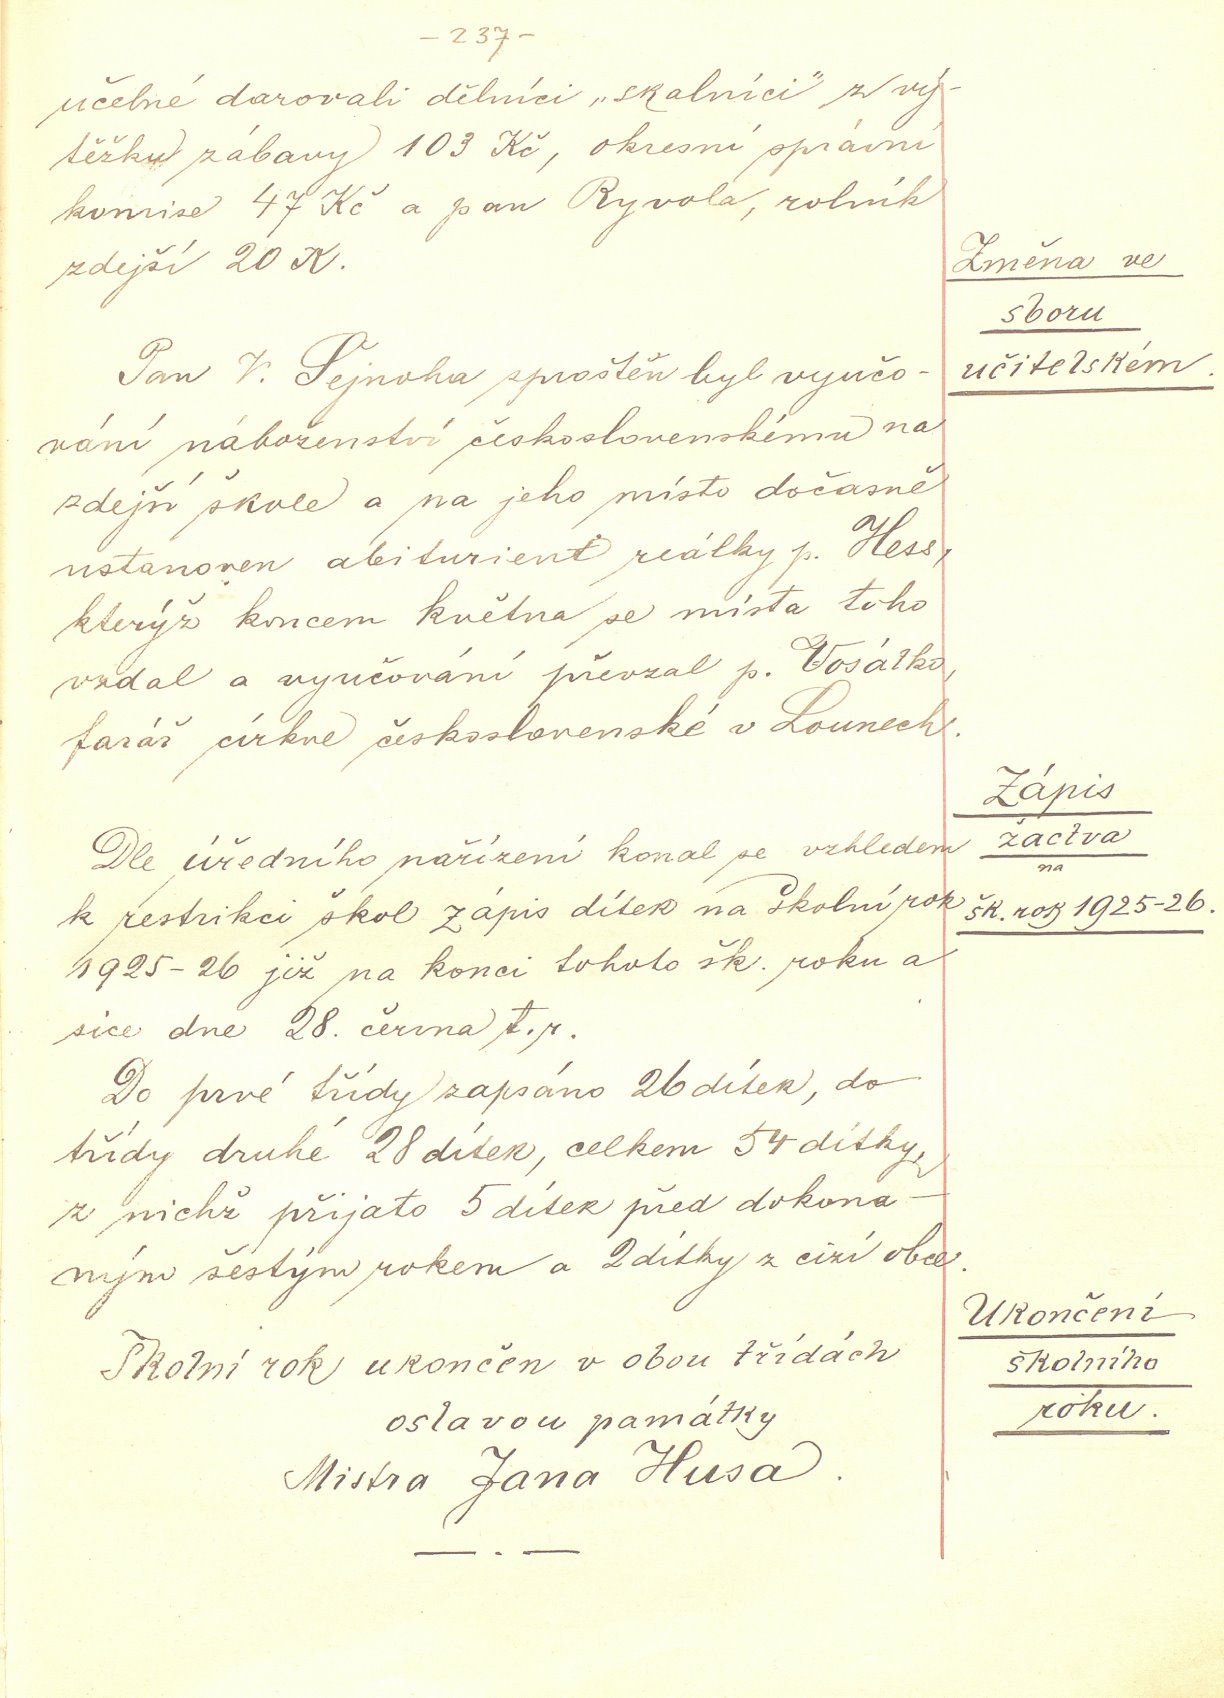 - 237 -
účelné darovali dělníci „skalníci" z vý-
těžku zábavy 103 Kč, okresní správní
komise 47 Kč a pan Ryvola, rolník
zdejší 20 K.
Změna ve
sboru
učitelském.
Pan V. Šejnoha sproštěn byl vyučo-
vání náboženství československému na
zdejší škole a na jeho místo dočasně
ustanoven abiturient reálky p. Hess,
kterýž koncem května se místa toho
vzdal a vyučování převzal p. Vosátko,
farář církve československé v Lounech.
Zápis
žactva
na
šk. rok 1925-26.
Dle úředního nařízení konal se vzhledem
k restrikci škol zápis dítek na školní rok
1925-26 již na konci tohoto šk. roku a
sice dne 28. června t. r.
Do prvé třídy zapsáno 26 dítek, do
třídy druhé 28 dítek, celkem 54 dítky,
z nichž přijato 5 dítek před dokona-
ným šestým rokem a 2 dítky z cizí obce.
Ukončení
školního
roku.
Školní rok ukončen v obou třídách
oslavou památky
Mistra Jana Husa.